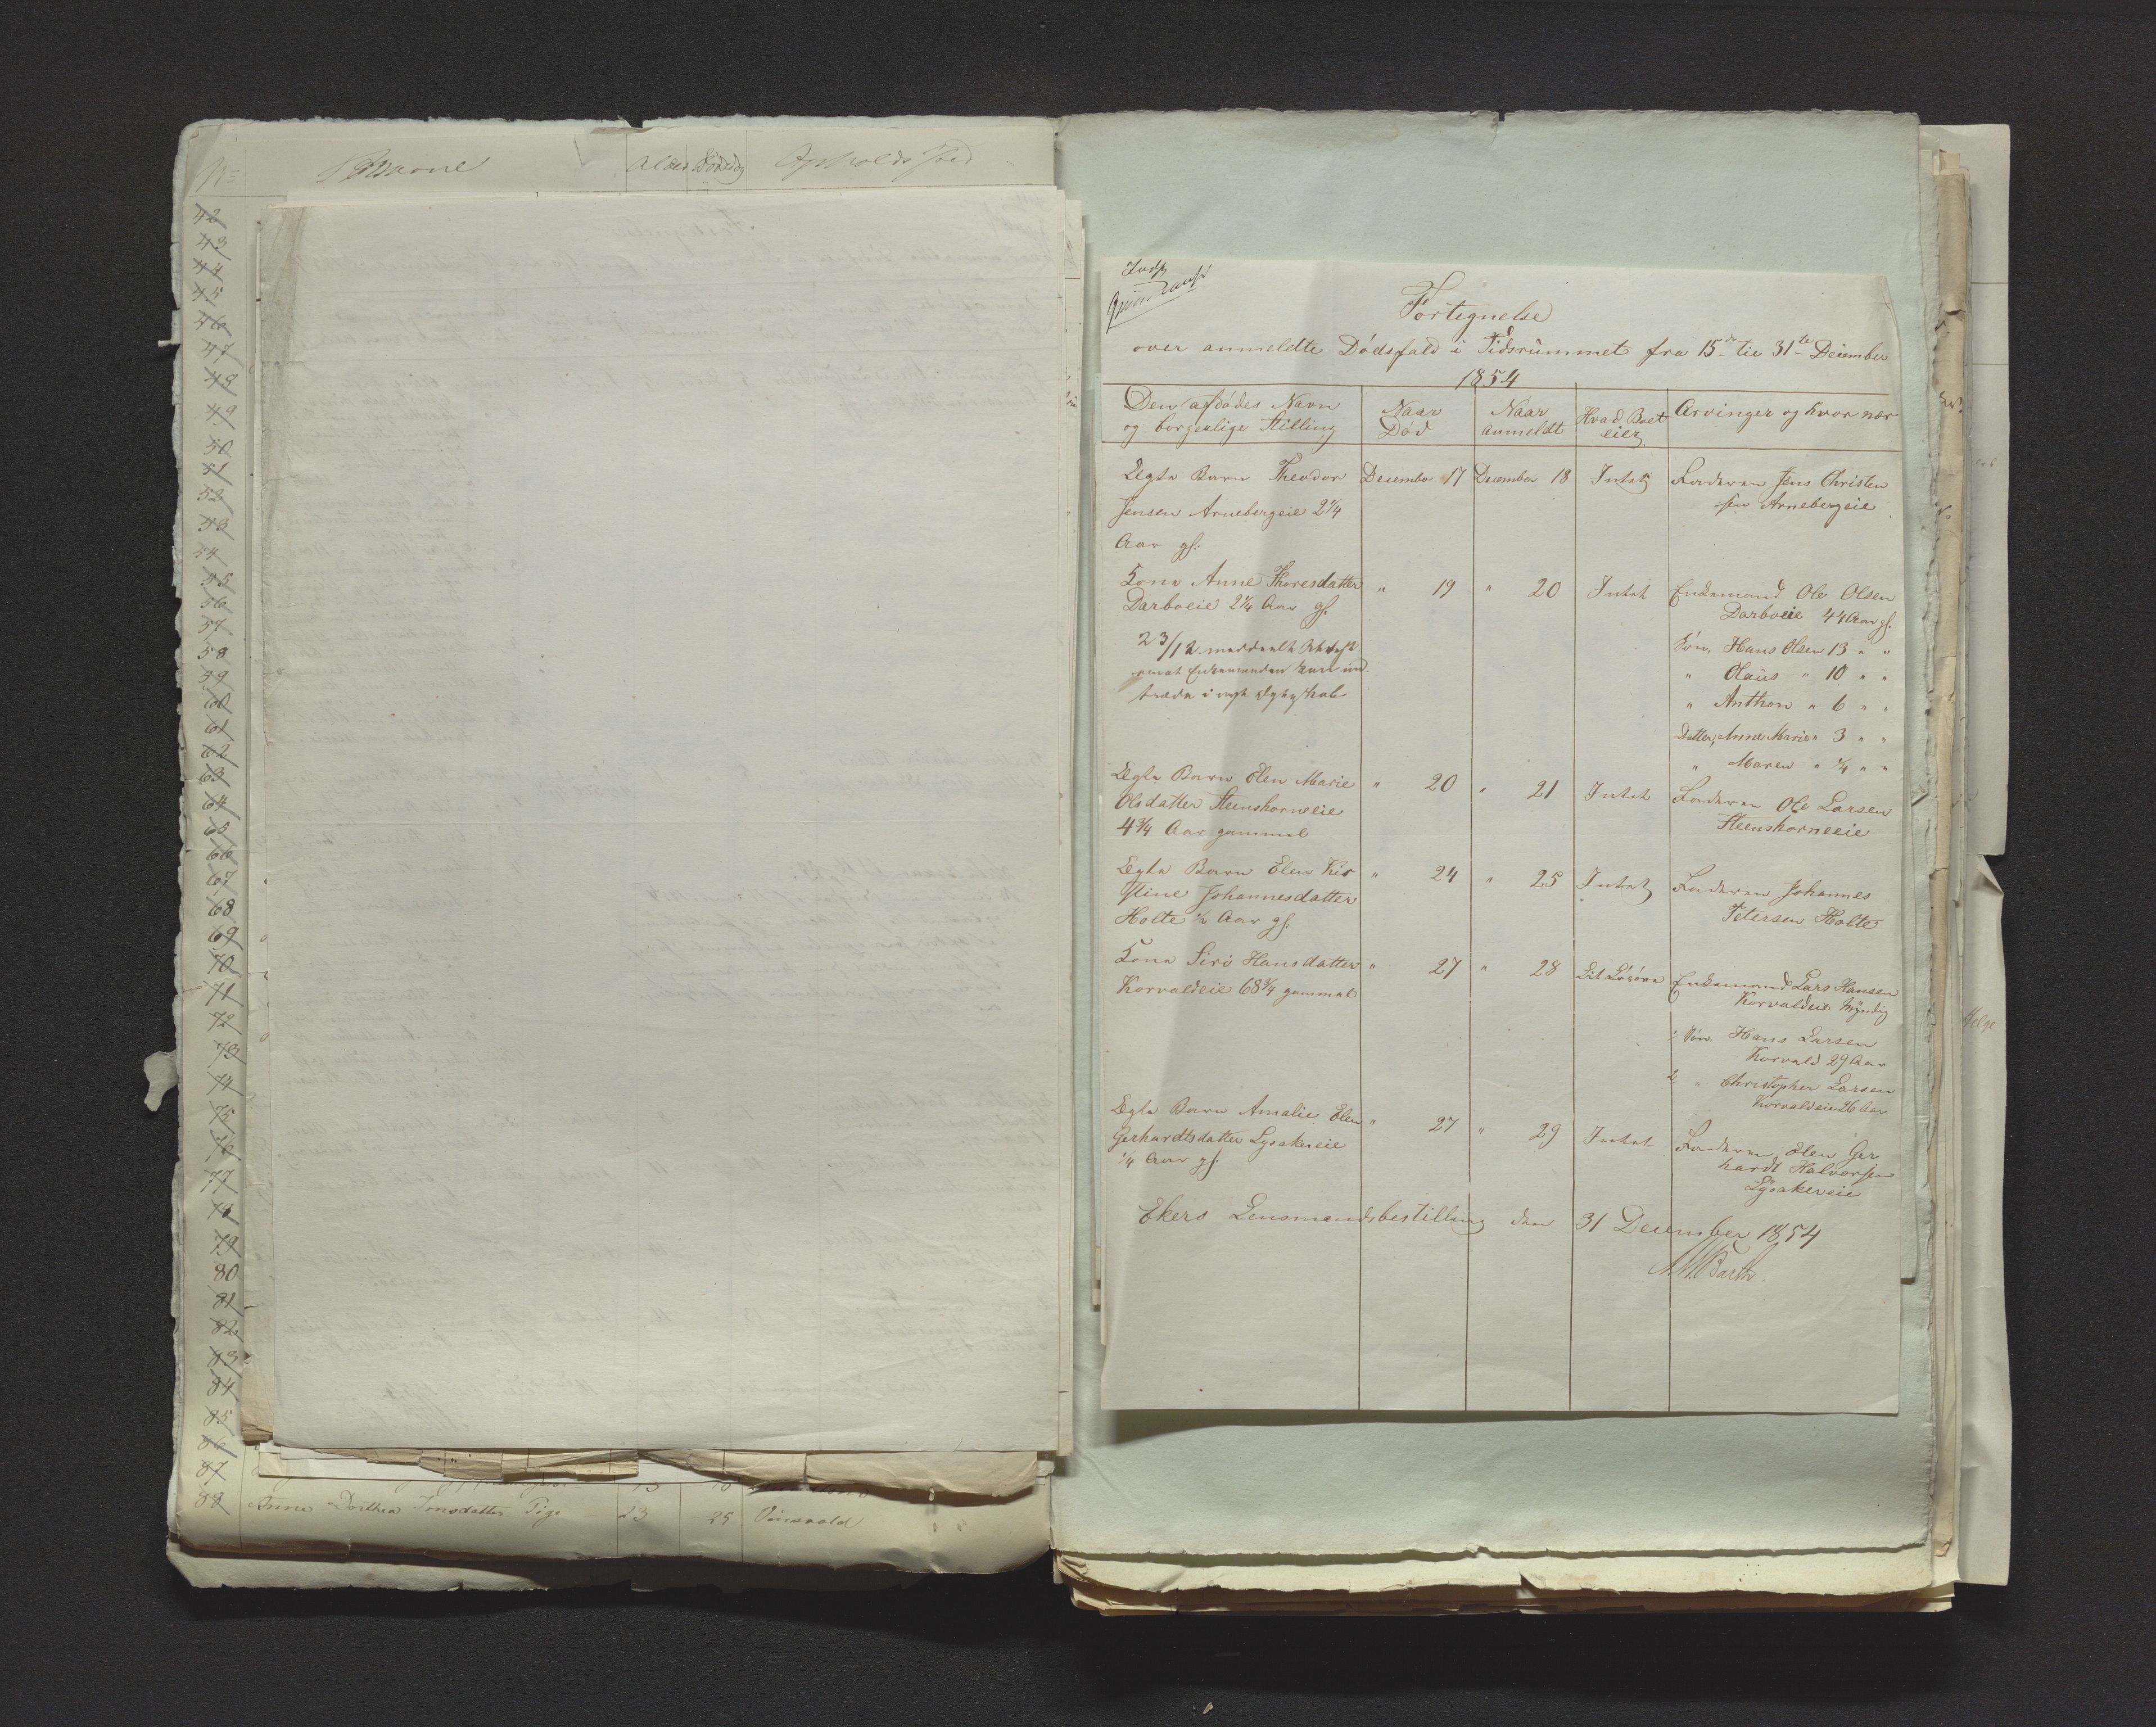 No Navne Alder Dødsdag Opholds Sted
42
43
44
45
46
47
48
49
50
51
52
53
54
55
56
57
58
59
60
61
62
63
64
65
66
67
68
69
70
71
72
73
74
75
76
77
78
79
80
81
82
83
84
85
86
87
88 Anne Dorthea Tonsdatter Pige 23 25
Fortegnelse
over anmeldte Dødsfald i Tidsrummet fra 15de til 31te December
1854
Den afdødes Navn og borgerlige Stilling
Naar Død
Naar anmeldt
Hvad Boet eier
Arvinger og hvor nær
Ægte Barn Theodor December 17 December 18 Intet Faderen Jens Christen
Jensen Arnebergeie 2 1/4 sen Arnebergeie
Aar gl.
Kone Anne Thoresdatter " 19 " 20 Intet Enkemand Ole Olsen
Darboeie Aar gl. Darboeie 44 Aar gl.
23/12 meddeelt Attest Søn, Hans Olsen 13 " "
Enkemanden kan ind " Olaus " 10 " "
træde i nyt Ægteskab " Anthon " 6 " "
Datter, Anne Marie " 3 " "
" Maren " 1/4 " "
Ægte Barn Elen Marie " 20 " 21 Intet Faderen Ole Larsen
Olsdatter Steenshorneeie Steenshorneeie
4 3/4 Aar gammel
Ægte Barn Elen Kir " 24 " 25 Intet Faderen Johannes
stine Johannesdatter Petersen Holte
Holte 1/2 Aar gl.
Kone Siri Hansdatter " 27 " 28 Lit Løsøre Enkemand Lars Hansen
Korvaldeie 68 3/4 gammel Korvaldeie Myndig
1 Søn. Hans Larsen
Korvald 29 Aar
2 " Christopher Larsen
Korvaldeie 26 Aar
Ægte Barn Amalie Elen " 27 " 29 Intet Faderen, Elen Ger
Gerhardtsdatter Lysakereie hardt Halvorsen
1/4 Aar gl. Lysakereie
Ekers Lensmandsbestilling den 31 December 1854
Barth